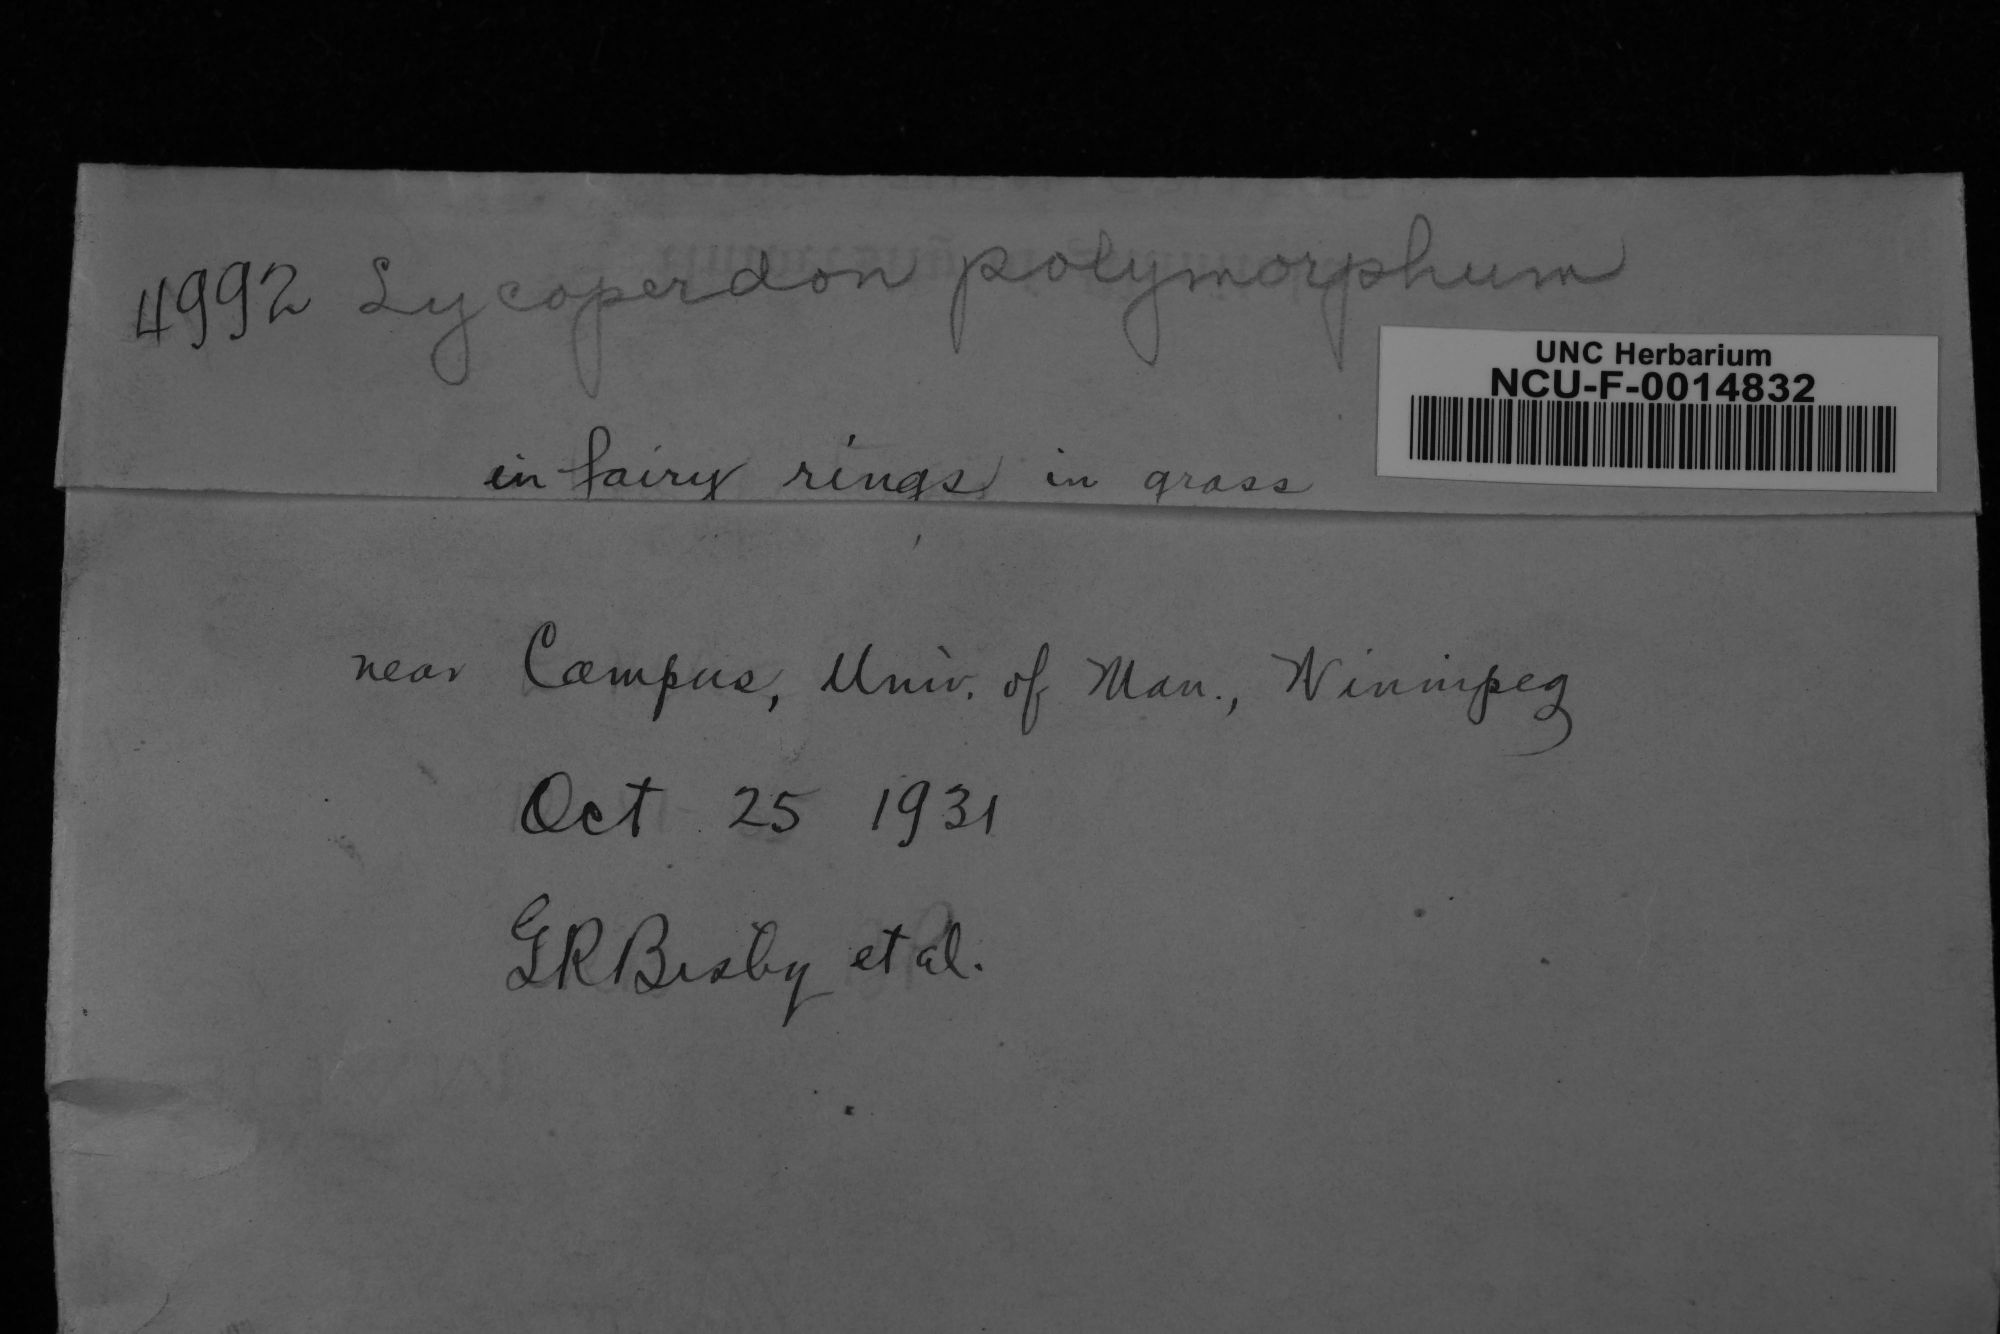 4992 Lycoperdon polymorphum
UNC Herbarium
NCU-F-0014832
in fairy rings in grass
near Campus, Univ. of Man., Winnipeg
Oct 25 1931
GRBisby et al.